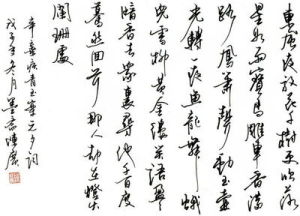 東風夜放花千樹更吹落
星如雨寶馬雕車香滿
路鳳簫聲動玉壺
光轉一夜魚龍舞蛾
兒雪柳黃金縷笑語盈
暗香去眾裏尋他千百度
驀然回首那人卻在燈火
闌珊處
辛棄疾青玉案元夕詞
年冬月墨